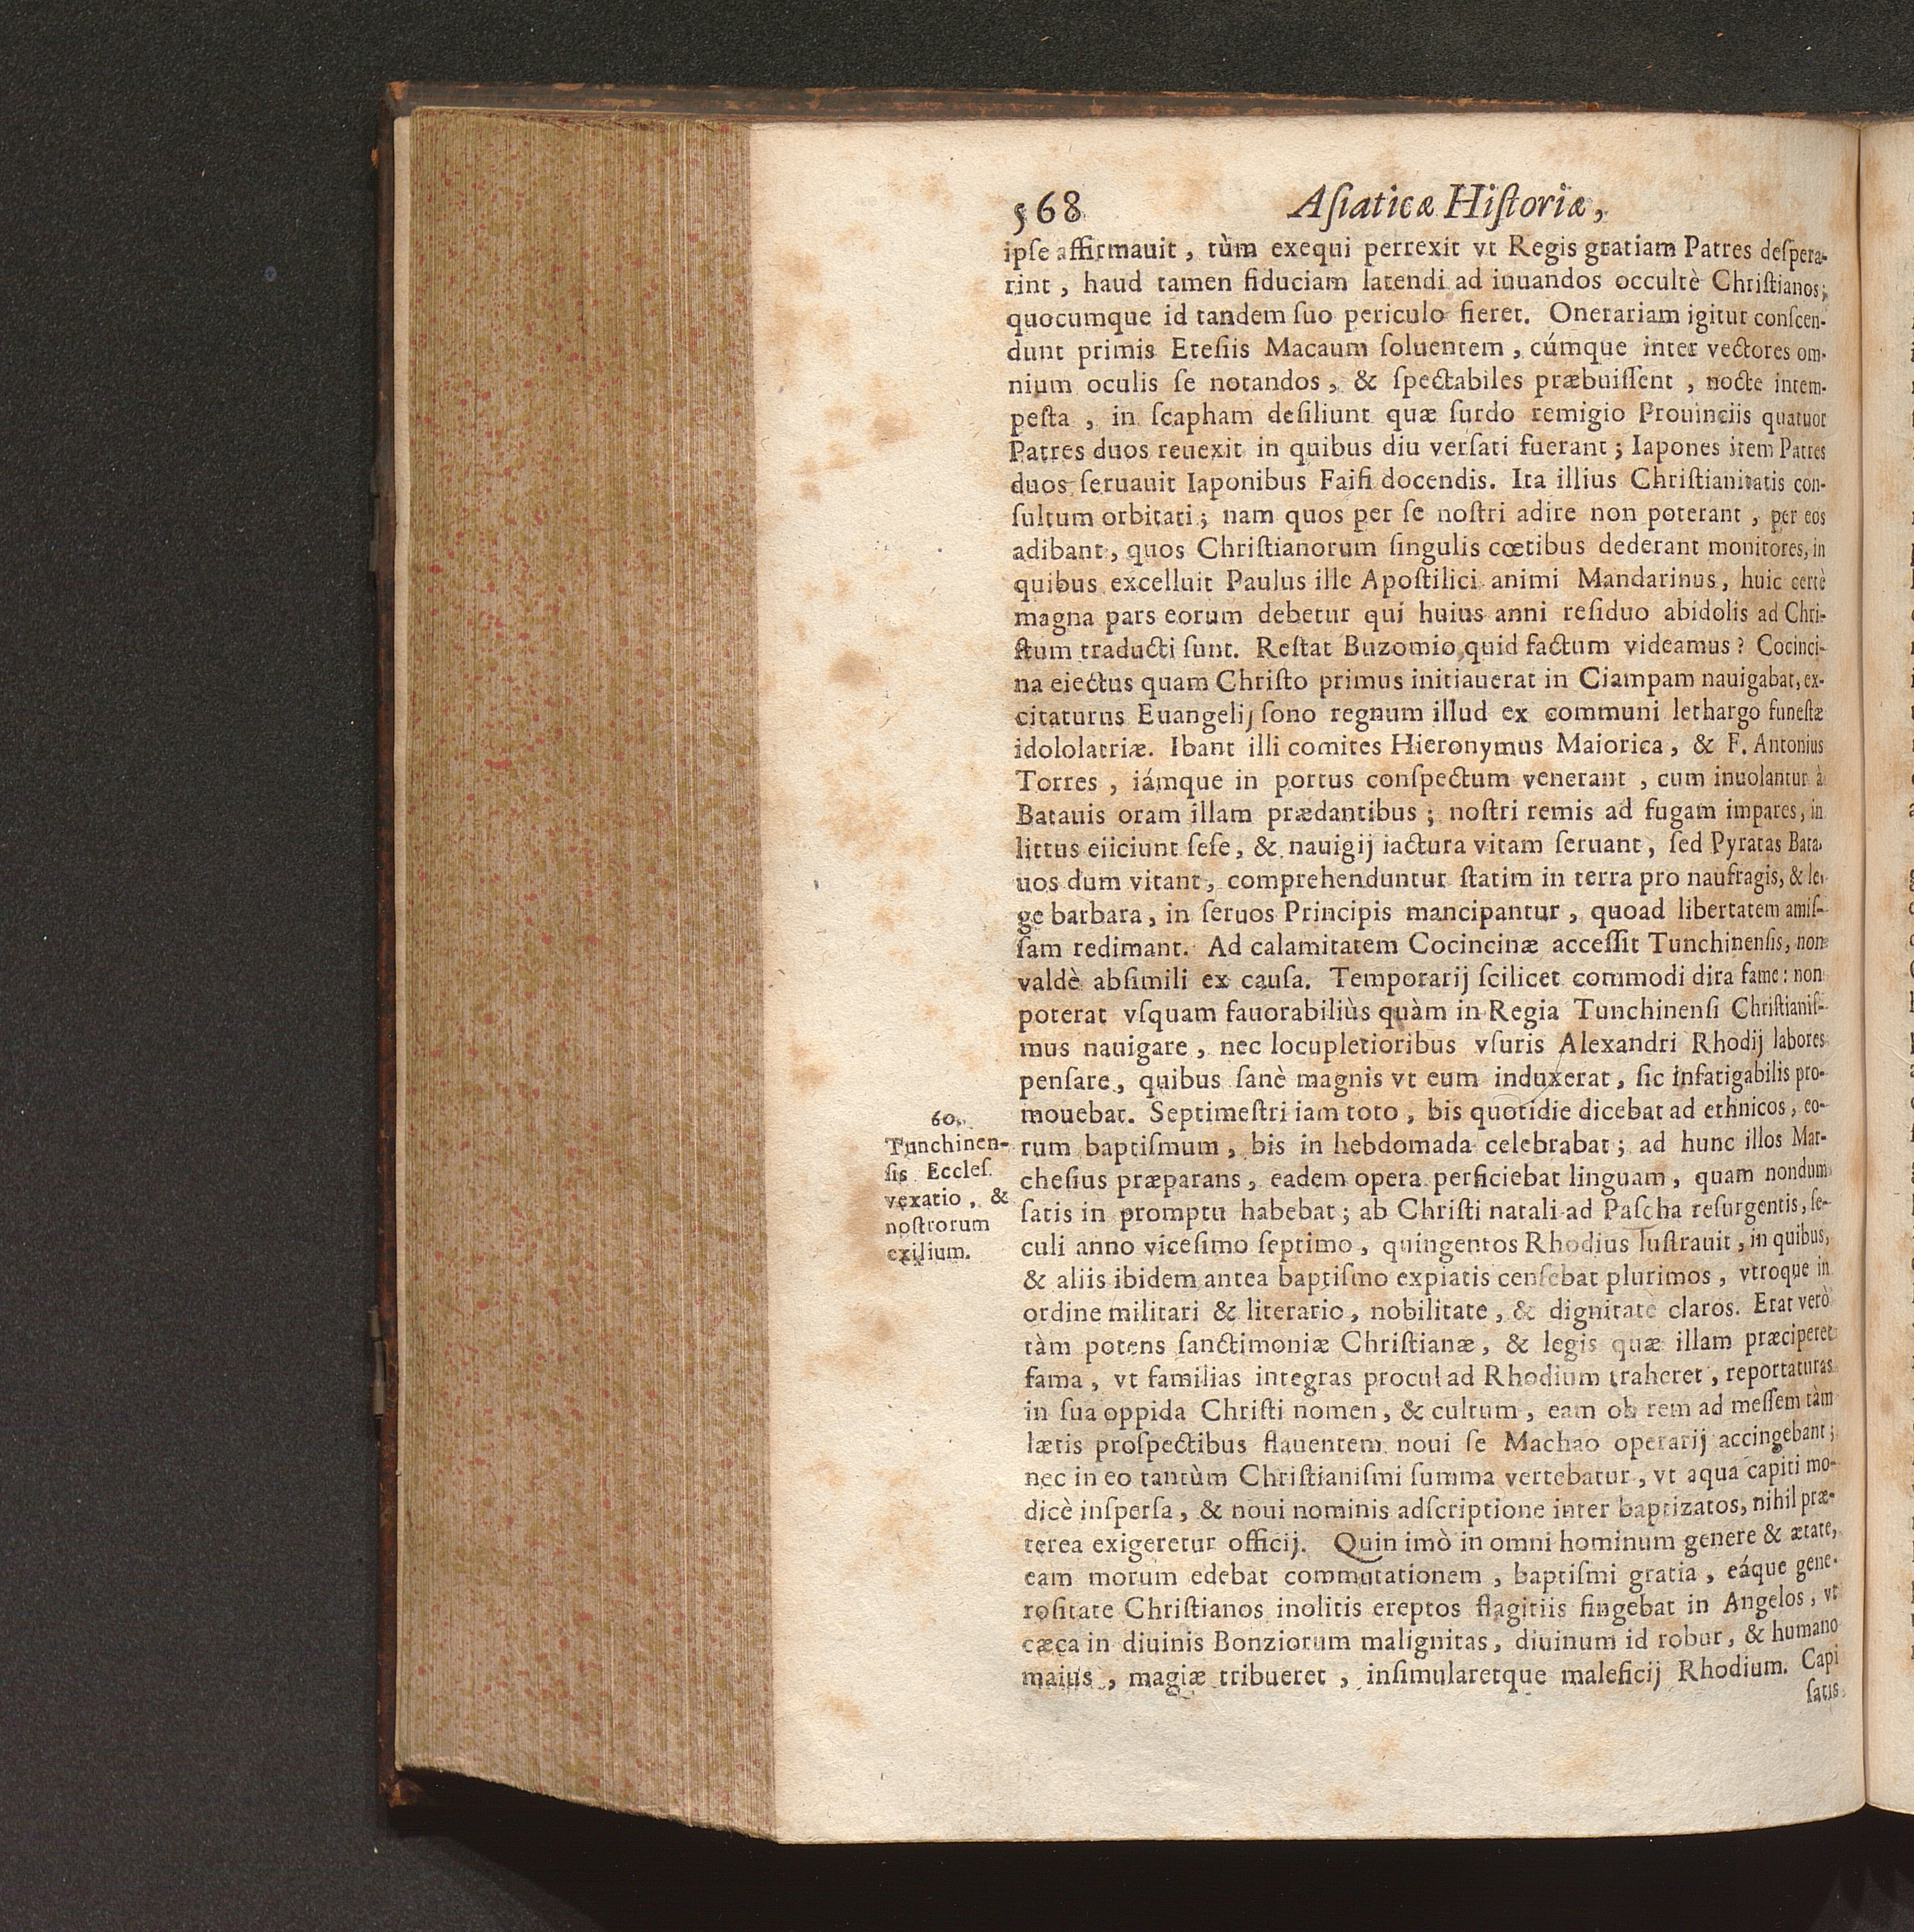 568 Aſiaticæ Hiſtoriæ,
ipſe affirmauit, tùm exequi perrexit vt Regis gratiam Patres deſpera-
rint, haud tamen fiduciam latendi ad iuuandos occultè Chriſtianos;
quocumque id tandem ſuo periculo fieret. Onerariam igitur conſcen-
dunt primis Eteſiis Macaum ſoluentem, cúmque inter vectores om-
nium oculis ſe notandos, & ſpectabiles præbuiſſent, nocte intem-
peſta, in ſcapham deſiliunt quæ ſurdo remigio Prouinciis quatuor
Patres duos reuexit in quibus diu verſati fuerant; Iapones item Patres
duos ſeruauit Iaponibus Faifi docendis. Ita illius Chriſtianitatis con-
ſultum orbitati; nam quos per ſe noſtri adire non poterant, per eos
adibant, quos Chriſtianorum ſingulis cœtibus dederant monitores, in
quibus excelluit Paulus ille Apoſtilici animi Mandarinus, huic certè
magna pars eorum debetur qui huius anni reſiduo abidolis ad Chri-
ſtum traducti ſunt. Reſtat Buzomio quid factum videamus? Cocinci-
na eiectus quam Chriſto primus initiauerat in Ciampam nauigabat, ex-
citaturus Euangelij ſono regnum illud ex communi lethargo funeſtæ
idololatriæ. Ibant illi comites Hieronymus Maiorica, & F. Antonius
Torres, iámque in portus conſpectum venerant, cum inuolantur à
Batauis oram illam prædantibus; noſtri remis ad fugam impares, in
littus eiiciunt ſeſe, & nauigij iactura vitam ſeruant, ſed Pyratas Bata-
uos dum vitant, comprehenduntur ſtatim in terra pro naufragis, & le-
ge barbara, in ſeruos Principis mancipantur, quoad libertatem amiſ-
ſam redimant. Ad calamitatem Cocincinæ acceſſit Tunchinenſis, non
valdè abſimili ex cauſa. Temporarij ſcilicet commodi dira fame: non
poterat vſquam fauorabiliùs quàm in Regia Tunchinenſi Chriſtianiſ-
mus nauigare, nec locupletioribus vſuris Alexandri Rhodij labores
penſare, quibus ſanè magnis vt eum induxerat, ſic infatigabilis pro-
mouebat. Septimeſtri iam toto, bis quotidie dicebat ad ethnicos, eo-
rum baptiſmum, bis in hebdomada celebrabat; ad hunc illos Mar-
cheſius præparans, eadem opera perficiebat linguam, quam nondum
ſatis in promptu habebat; ab Chriſti natali ad Paſcha reſurgentis, ſe-
culi anno viceſimo ſeptimo, quingentos Rhodius luſtrauit, in quibus,
& aliis ibidem antea baptiſmo expiatis cenſebat plurimos, vtroque in
ordine militari & literario, nobilitate, & dignitate claros. Erat verò
tàm potens ſanctimoniæ Chriſtianæ, & legis quæ illam præciperet
fama, vt familias integras procul ad Rhodium traheret, reportaturas
in ſua oppida Chriſti nomen, & cultum, eam ob rem ad meſſem tàm
lætis proſpectibus flauentem noui ſe Machao operarij accingebant;
nec in eo tantùm Chriſtianiſmi ſumma vertebatur, vt aqua capiti mo-
dicè inſperſa, & noui nominis adſcriptione inter baptizatos, nihil præ-
terea exigeretur officij. Quin imò in omni hominum genere & ætate,
eam morum edebat commutationem, baptiſmi gratia, eáque gene-
roſitate Chriſtianos inolitis ereptos flagitiis fingebat in Angelos, vt
cæca in diuinis Bonziorum malignitas, diuinum id robur, & humano
maius, magiæ tribueret, inſimularetque maleficij Rhodium. Capi
ſatis
60.
Tunchinen-
ſis Eccleſ.
vexatio, &
noſtrorum
exilium.